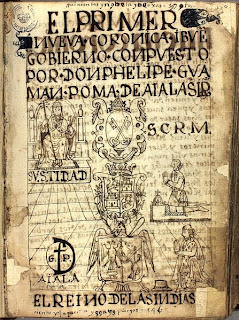 EL PRIMER
NVEVA CORONICA I BVE
GOBIERNO CONPVESTO
POR DON PHELIPE GVA
MAN POMA DE AIALA S IR
S.C.R.M.
SVSTIDAD
G P
AIALA
EL REINO DE LAS INDIAS